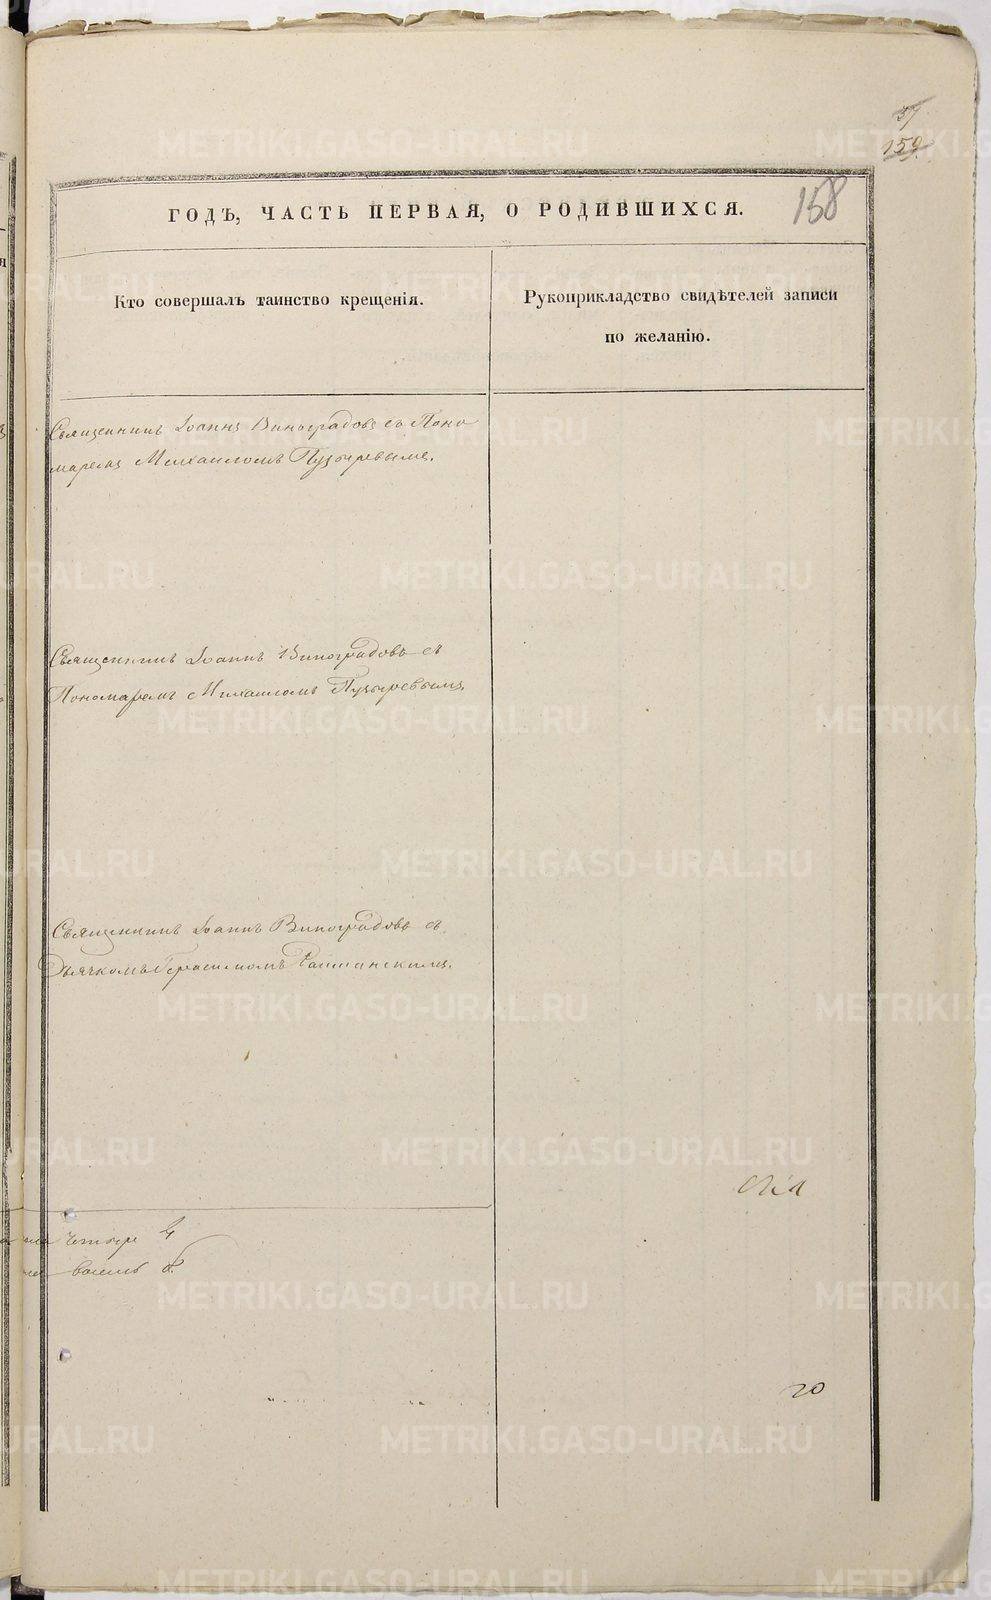 37
159
158
ГОДЪ, ЧАСТЬ ПЕРВАЯ, О РОДИВШИХСЯ.
Кто совершалъ таинство крещенія.
Рукоприкладство свидѣтелей записи
по желанію.
Священникъ Іоаннъ Виноградовъ съ Поно
маремъ Михаиломъ Пузыревымъ.
Священникъ Іоаннъ Виноградовъ съ
Пономаремъ Михаиломъ Пузыревымъ.
Священникъ Іоаннъ Виноградовъ съ
Дьячкомъ Герасимомъ
четыре 4
восемь 8.
20
METRIKI.GASO-URAL.RU